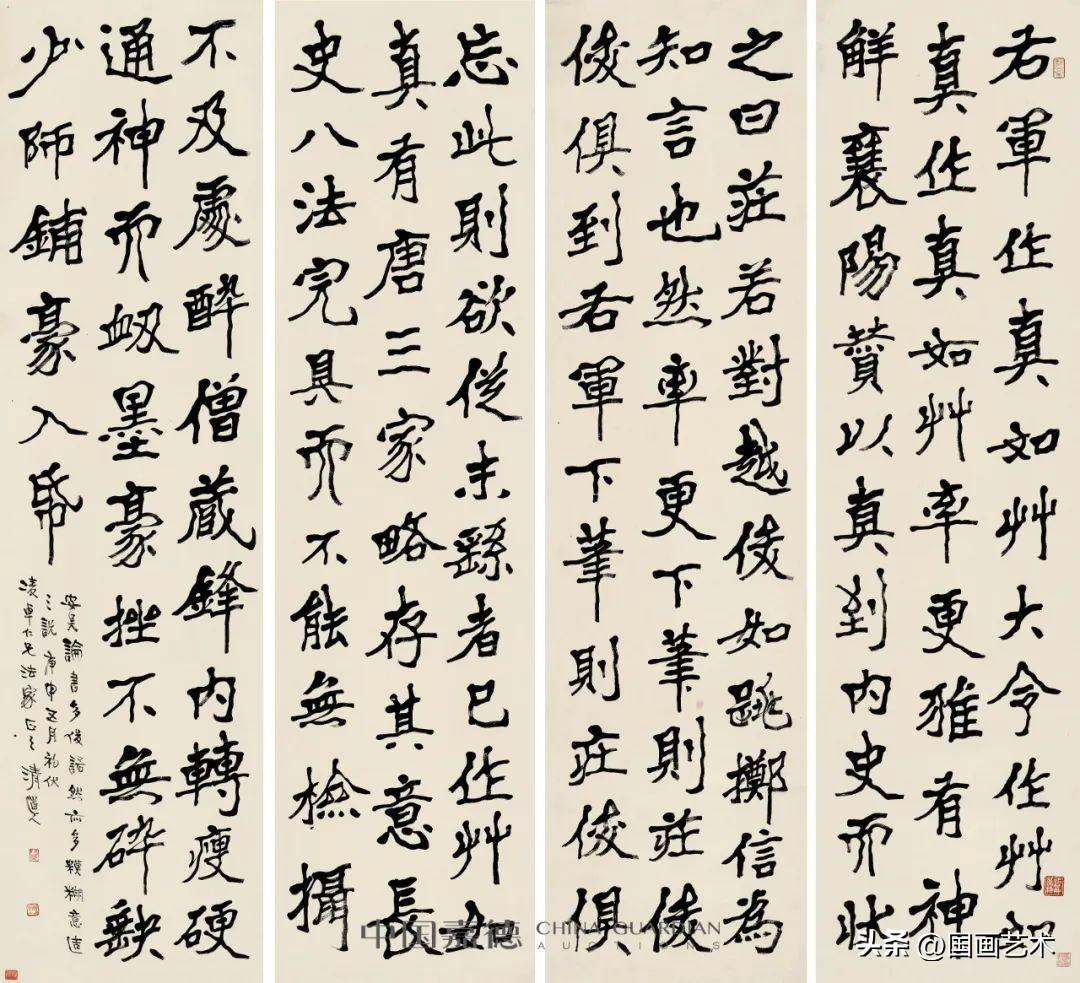 右軍作真如艸大令作艸如
真作真如艸率更雅有神
解襄陽贊以真到内史而狀
之曰莊若對越俊如跳擲信為
知言也然率更下筆則莊俊
俊俱到右軍下筆則莊俊俱
忘此則欲從末繇者已作艸
真有唐三家略存其意長
史八法完具而不能無檢攝
不及處醉僧藏鋒内轉瘦硬
通神而衂墨豪挫不無碎缺
少師鋪豪入帋
安吴論書多俊語然亦多模糊意造
之說庚申五月
凌卓仁兄法家正之 清道人
中国嘉德 CHINA GUARDIAN
AUCTIONS
头条 @国画艺术